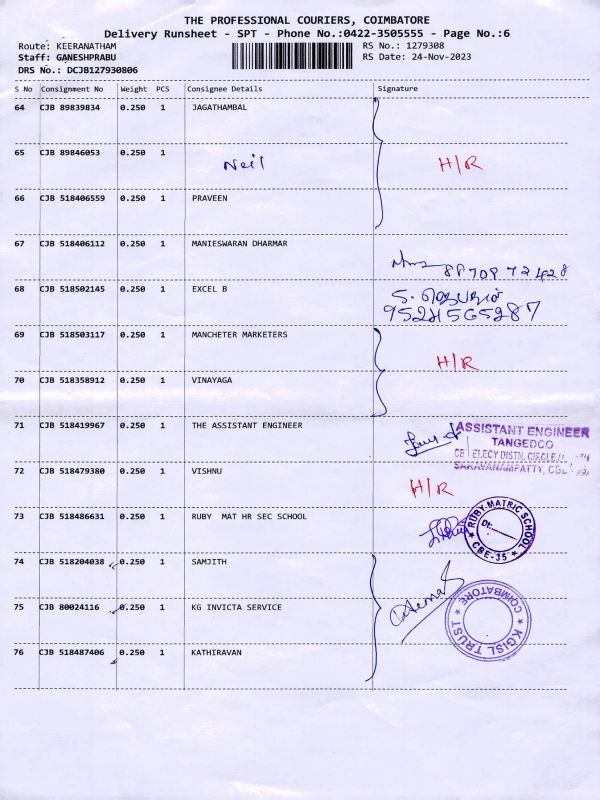 THE PROFESSIONAL COURIERS, COIMBATORE
Delivery Runsheet - SPT - Phone No.:0422-3505555 - Page No.:6
Route: KEERANATHAM RS No.: 1279308
Staff: GANESHPRABU RS Date: 24-Nov-2023
DRS No.: DCJB127930806
S No Consignment No Weight PCS Consignee Details Signature
64 CJB 89839834 0.250 1 JAGATHAMBAL
65 CJB 89846053 0.250 1 Neil H/R
66 CJB 518406559 0.250 1 PRAVEEN
67 CJB 518406112 0.250 1 MANIESWARAN DHARMAR
68 CJB 518502145 0.250 1 EXCEL B
9524565287
69 CJB 518503117 0.250 1 MANCHETER MARKETERS
H/R
70 CJB 518358912 0.250 1 VINAYAGA
71 CJB 518419967 0.250 1 THE ASSISTANT ENGINEER
ASSISTANT ENGINEER
TANGEDCO
CBE ELECY DISTN. CIRCLE
SARAVANAMPATTY, CBE
72 CJB 518479380 0.250 1 VISHNU
H/R
73 CJB 518486631 0.250 1 RUBY MAT HR SEC SCHOOL
RUBY MATRIC SCHOOL
Dt:
CBE-35
74 CJB 518204038 0.250 1 SAMJITH
75 CJB 80024116 0.250 1 KG INVICTA SERVICE
KGISL TRUST
COIMBATORE
76 CJB 518487406 0.250 1 KATHIRAVAN